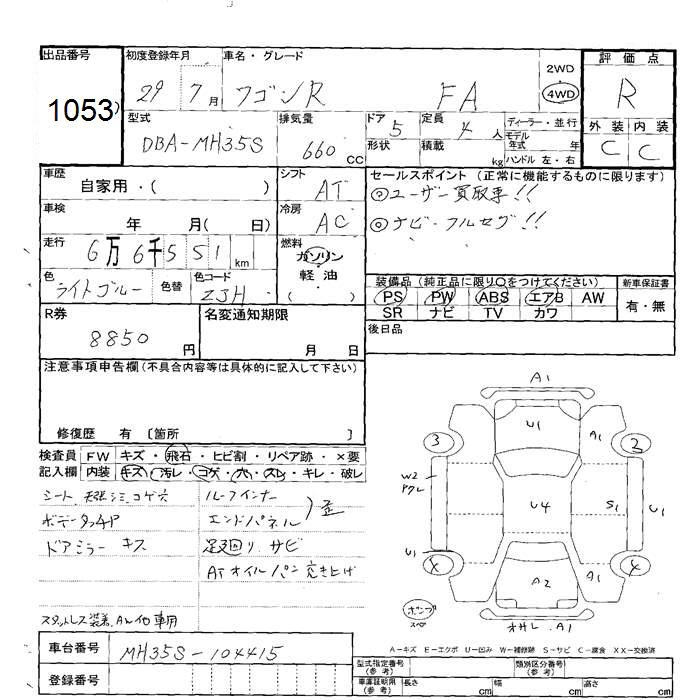 出品番号
1053
初度登録年月
29 7月
車名・グレード
ワゴンR FA
2WD
4WD
評価点
R
外装 内装
C C
型式
DBA-MH35S
排気量
660 CC
ドア
5
形状
定員
4 人
積載
kg
ディーラー・並行
モデル年式 年
ハンドル 左・右
車歴
自家用・( )
シフト
AT
車検
年 月( 日)
冷房
AC
走行
6万6千551 km
燃料
ガソリン
軽油
( )
色
ライトブルー
色替
色コード
ZJH
セールスポイント(正常に機能するものに限ります)
◎ユーザー買取車!!
◎ナビ・フルセグ!!
装備品(純正品に限り○をつけてください)
PS PW ABS エアB AW
SR ナビ TV カワ
新車保証書
有・無
後日品
R券
8850円
名変通知期限
月 日
注意事項申告欄(不具合内容等は具体的に記入して下さい)
修復歴 有 〔箇所 〕
検査員記入欄
FW キズ・飛石・ヒビ割・リペア跡・×要
内装 キズ・汚レ・コゲ・穴・スレ・キレ・破レ
シート 天張シミコゲ穴
ボデータッチP
ドアミラー キズ
ルーフインナー
エンドパネル
) 歪
足廻り サビ
ATオイルパン突き上げ
スタットレス装着
車台番号
MH35S-104415
登録番号
A1
U1
A1
3
2
W2
アクレ
U4
S1
U1
U1
4
4
A2
A1
ポンプ
スペア
オサレ.A1
A-キズ E-エクボ U-凹み W-補修跡 S-サビ C-腐食 XX-交換済
型式指定番号(参考)
類別区分番号(参考)
車庫証明用(参考)
長さ cm
幅 cm
高さ cm